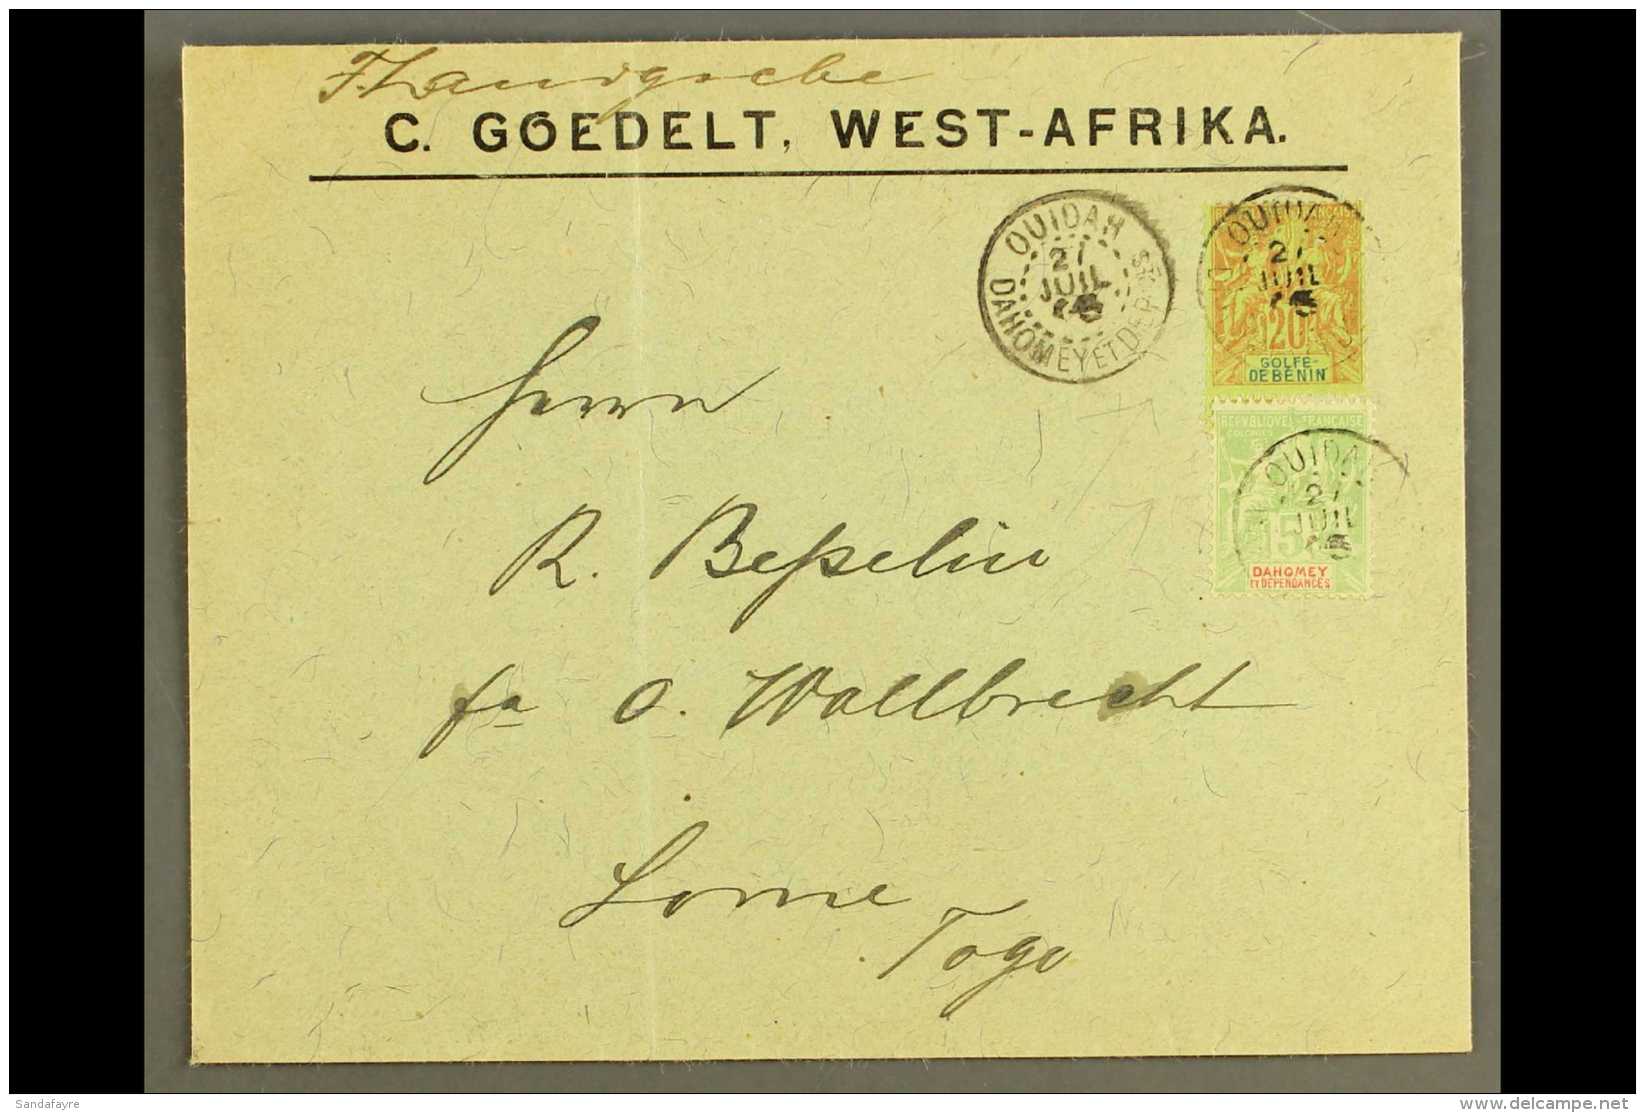 C. GOEDELT, WEST-AFRIKA.
OUIDAH
21
JUIL
DAHOMEY ET DEP
OUIDAH
21
JUIL
20
GOLFE
DE BÉNIN
REPVBLIQVE FRANÇAISE
OUIDA
21
JUIL
5
DAHOMEY
ET DÉPENDANCES
Herrn
R.
fa O. Wallbrecht
Lome
Togo
Sandafayre
www.delcampe.net